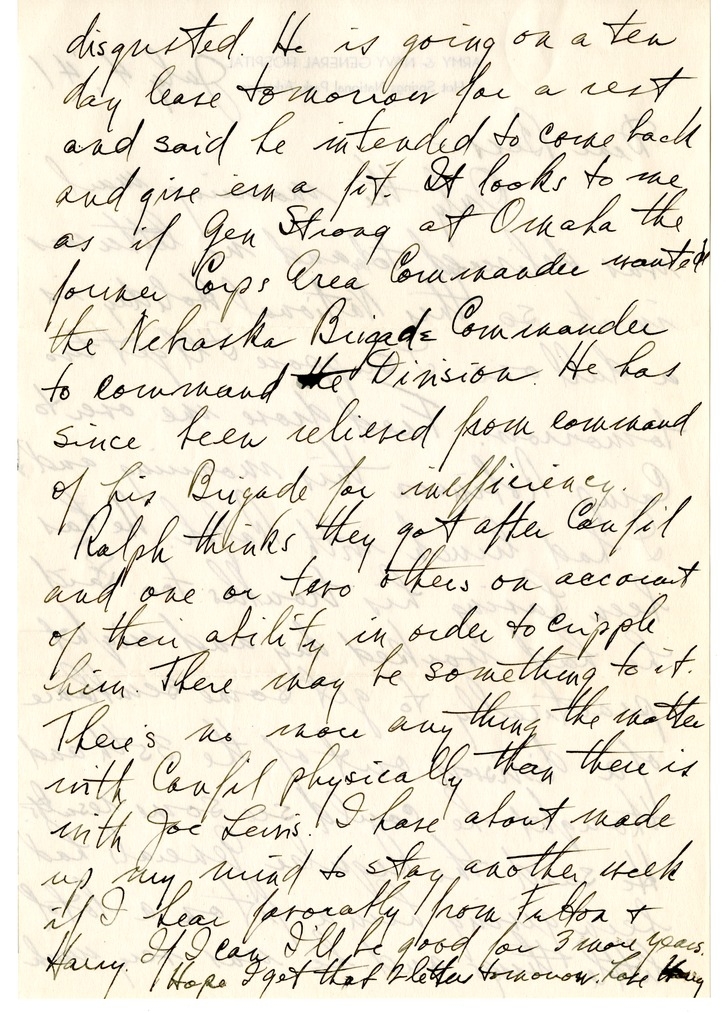 disgusted. He is going on a ten
day leave tomorrow for a rest
and said he intended to come back
and give em a fit. It looks to me
as if Gen Strong at Omaha the
former Corps Area Commander wanted
the Nebraska Brigade Commander
to command the Division. He has
since been relieved from command
of his Brigade for inefficiency.
Ralph thinks they got after Canfil
and one or two others on account
of their ability in order to cripple
him. There may be something to it.
There's no more any thing the matter
with Canfil physically than there is
with Joe Lewis. I have about made
up my mind to stay another week
if I hear favorably from Fulton +
Harry. If I can I'll be good for 3 more years.
Hope I get that 2 letter tomorrow. Love Harry